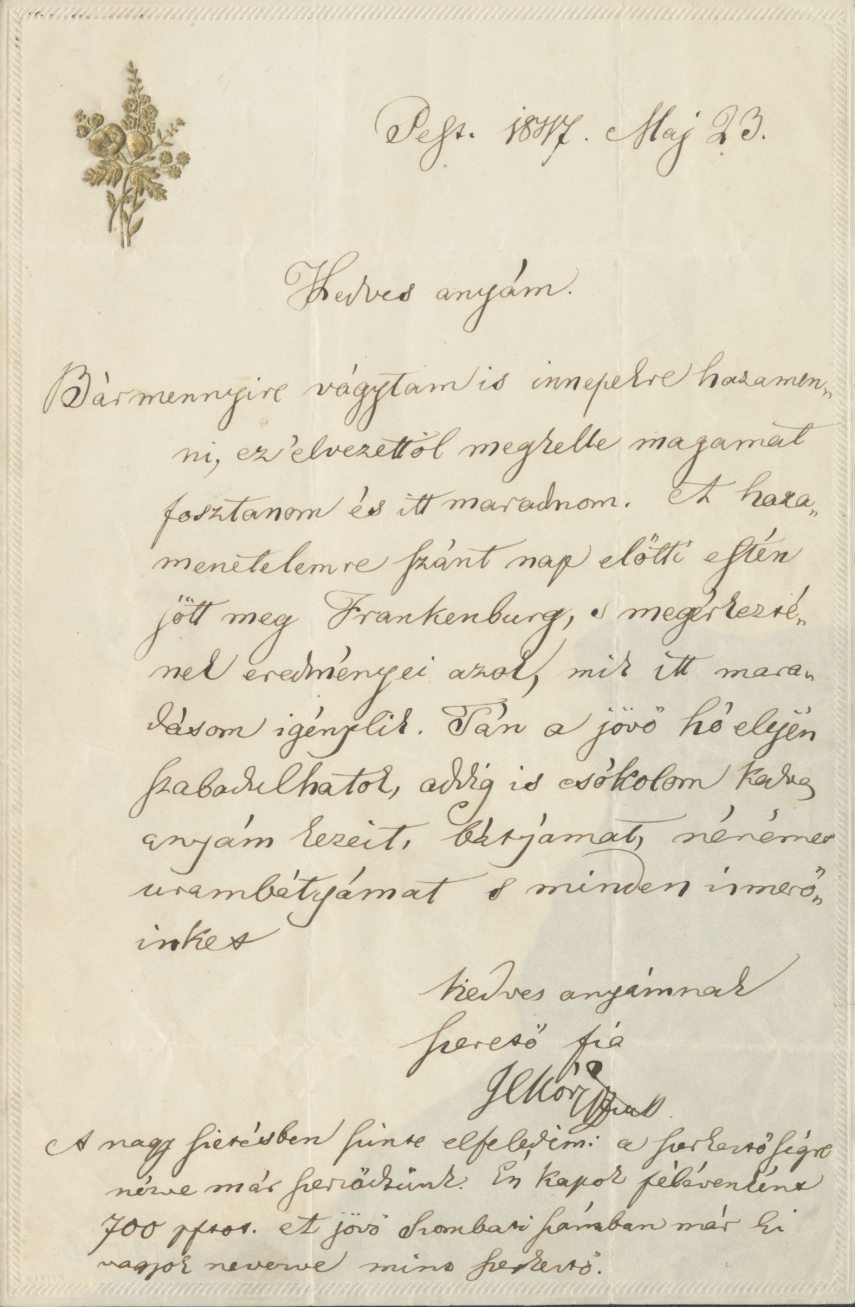 Pest. 1847. Maj 23.
Kedves anyám.
Bármennyire vágytam is innepekre hazamen„
ni, ez élvezettöl megkelle magamat
fosztanom és itt maradnom. A haza„
menetelemre szánt nap elötti estén
jött meg Frankenburg, s megérkezté„
nek eredményei azok, mik itt mara„
dásom igénylik. Tán a jövö hó elején
szabadulhatok, addig is csókolom kedves
anyám kezeit, bátjámat, nénémet
urambátyámat s minden ismerö„
inket
kedves anyámnak
szeretö fia
JMór
A nagy sietésben szinte elfeledém: a szerkesztöségre
nézve már szerzödtünk. Én kapok félévenként
700 pftot. A jövö szombati számban már ki
vagyok nevezve mint szerkesztö.